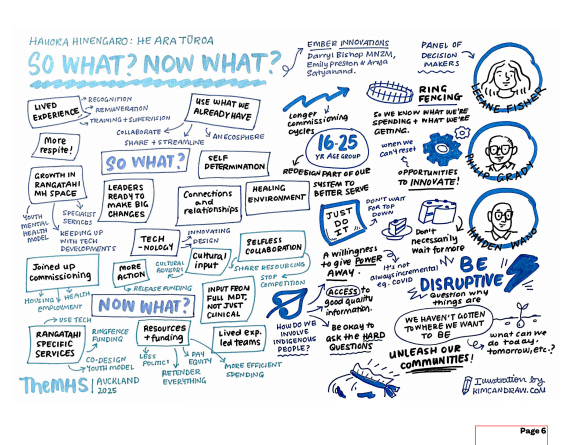 HAUORA HINENGARO: HE ARA TŪROA
SO WHAT? NOW WHAT?
EMBER INNOVATIONS
Darryl Bishop MNZM,
Emily Preston & Anja
Satyanand.
PANEL OF
DECISION
MAKERS
LEANE FISHER
PHILIP GRADY
HAYDEN WANO
LIVED
EXPERIENCE
RECOGNITION
REMUNERATION
TRAINING + SUPERVISION
USE WHAT WE
ALREADY HAVE
COLLABORATE
SHARE + STREAMLINE
AN ECOSPHERE
More
respite!
SO WHAT?
SELF
DETERMINATION
GROWTH IN
RANGATAHI
MH SPACE
YOUTH
MENTAL
HEALTH
MODEL
SPECIALIST
SERVICES
KEEPING UP
WITH TECH
DEVELOPMENTS
LEADERS
READY TO
MAKE BIG
CHANGES
Connections
and
relationships
HEALING
ENVIRONMENT
TECH
-NOLOGY
INNOVATING
DESIGN
Cultural
input
CULTURAL
ADVISORS
SELFLESS
COLLABORATION
SHARE RESOURCING
STOP
COMPETITION
Joined up
commissioning
HOUSING
HEALTH
EMPLOYMENT
MORE
ACTION
RELEASE FUNDING
INPUT FROM
FULL MDT,
NOT JUST
CLINICAL
NOW WHAT?
RANGATAHI
SPECIFIC
SERVICES
USE TECH
RINGFENCE
FUNDING
CO-DESIGN
YOUTH MODEL
Resources
+ funding
LESS
POLITICS
RETENDER
EVERYTHING
PAY
EQUITY
MORE EFFICIENT
SPENDING
Lived exp.
led teams
TheMHS
AUCKLAND
2025
Longer
commissioning
cycles
RING
FENCING
SO WE KNOW WHAT WE'RE
SPENDING + WHAT WE'RE
GETTING.
16-25
YR AGE GROUP
REDESIGN PART OF OUR
SYSTEM TO
BETTER SERVE
when we
can't reset
OPPORTUNITIES
TO INNOVATE!
JUST
DO
IT
DON'T WAIT
FOR TOP
DOWN
Don't
necessarily
wait for more
A willingness
to give POWER
AWAY.
It's not
always incremental
eg. COVID
BE
DISRUPTIVE
Question why
things are
ACCESS to
good quality
information.
HOW DO WE
INVOLVE
INDIGENOUS
PEOPLE?
Be okay to
ask the HARD
QUESTIONS
WE HAVEN'T GOTTEN
TO WHERE WE WANT
TO BE
what can we
do today,
tomorrow, etc.?
UNLEASH OUR
COMMUNITIES!
Illustration by
KIMCANDRAW.COM
Page 6